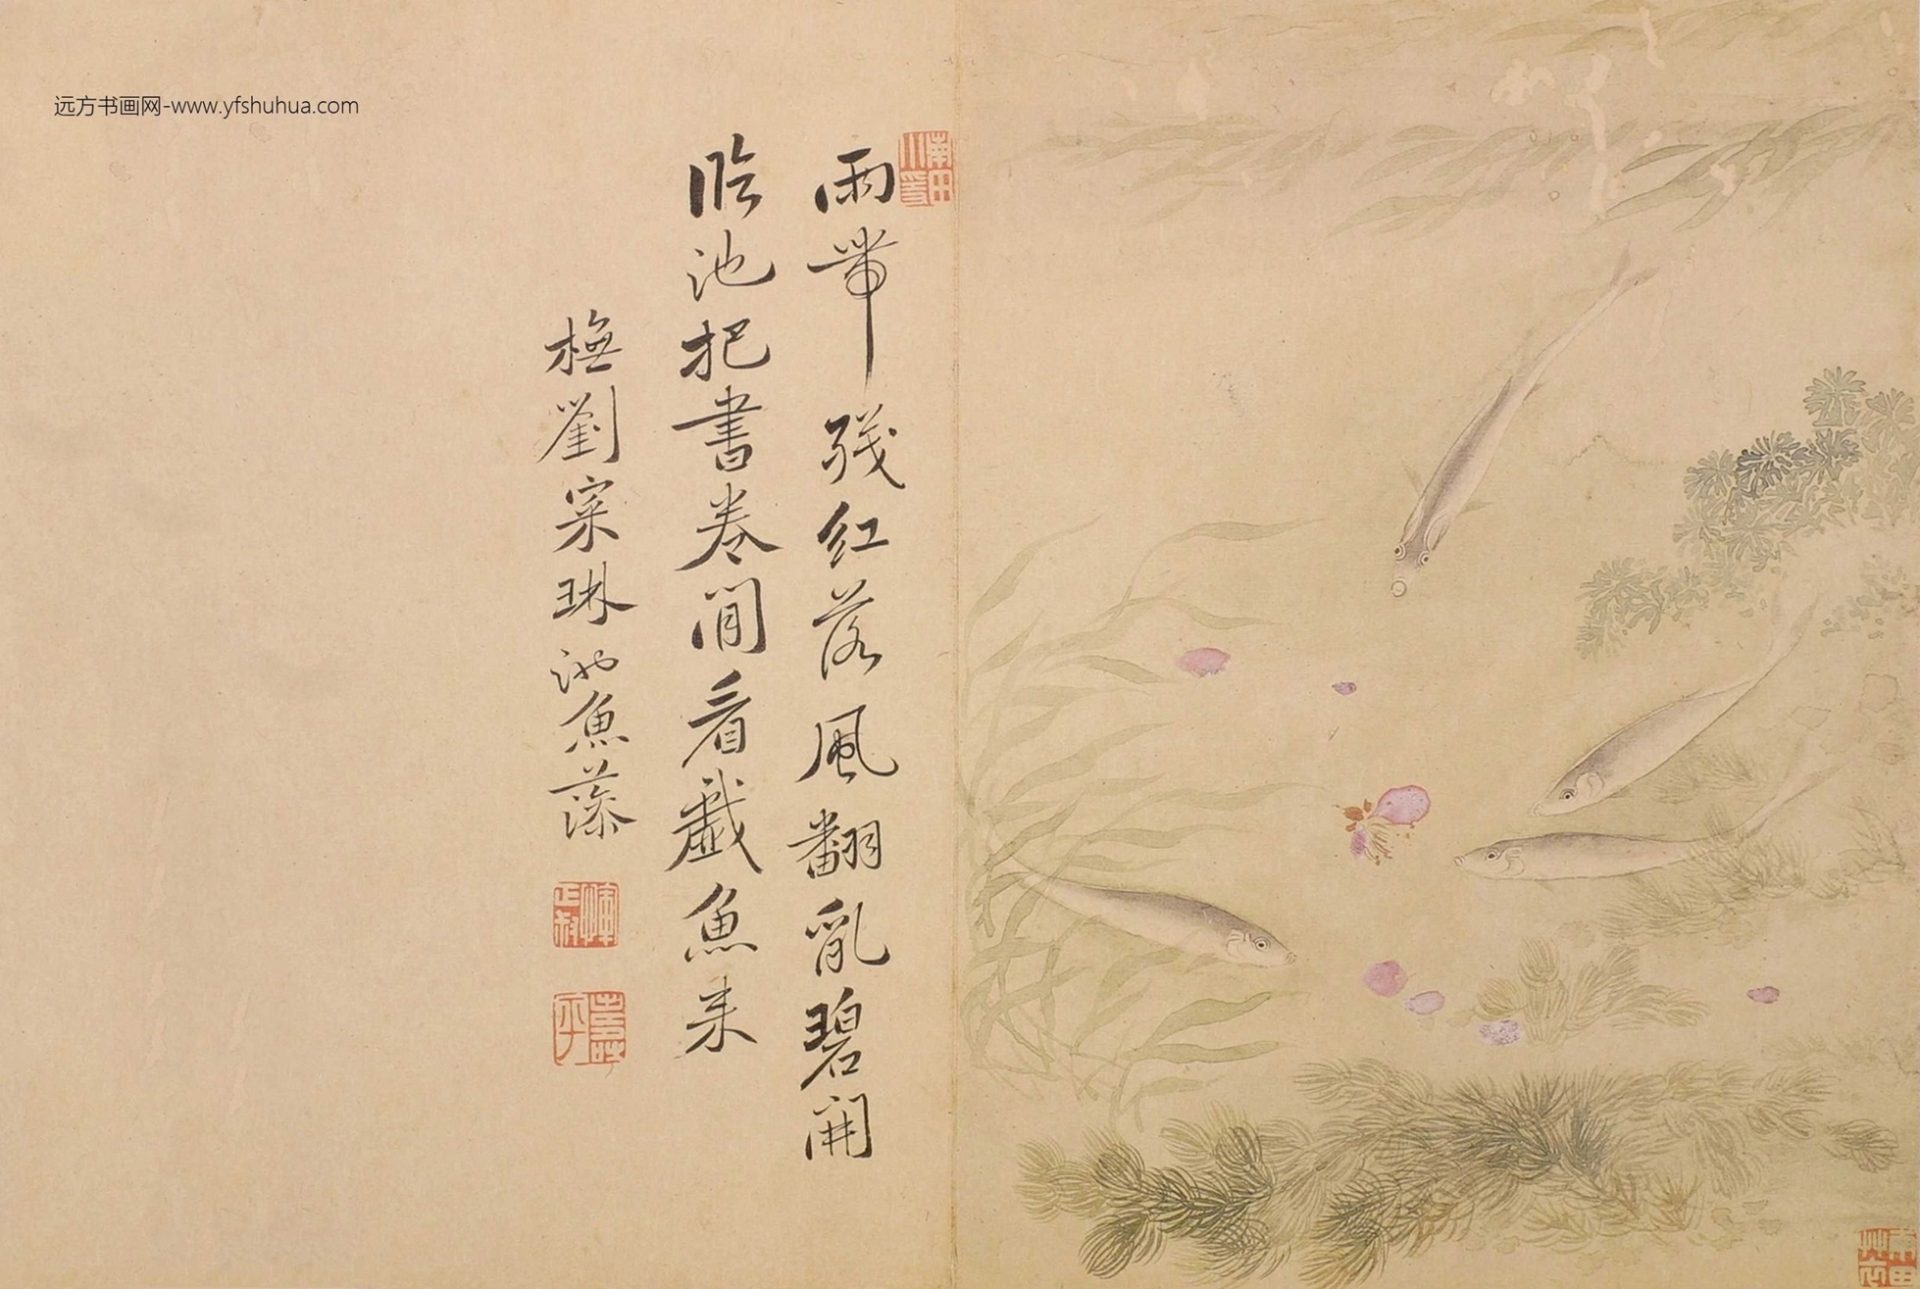 远方书画网-www.yfshuhua.com
雨帶殘紅落風翻亂碧開
臨池把書卷閒看戲魚来
橅劉寀琳池魚藻
惲正叔
壽平